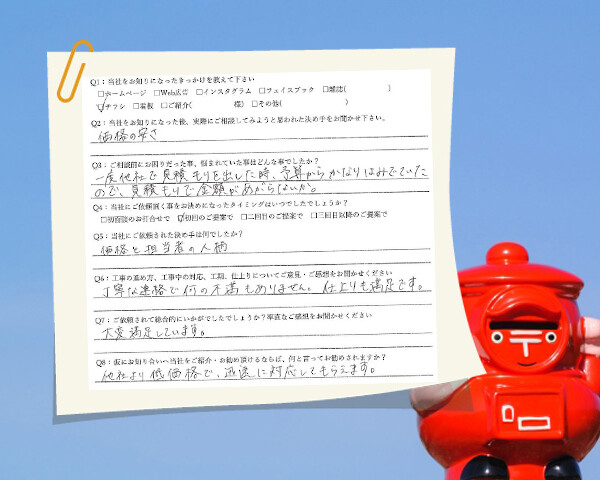 Q1：当社をお知りになったきっかけを教えて下さい
□ホームページ □Web広告 □インスタグラム □フェイスブック □雑誌( )
☑チラシ □看板 □ご紹介( 様) □その他( )
Q2：当社をお知りになった後、実際にご相談してみようと思われた決め手をお聞かせ下さい。
価格の安さ
Q3：ご相談前にお困りだった事、悩まれていた事はどんな事でしたか？
一度他社で見積もりを出した時、予算からかなりはみでていた
ので、見積もりで金額があがらないか。
Q4：当社にご依頼頂く事をお決めになったタイミングはいつでしたでしょうか？
□初面談のお打合せで ☑初回のご提案で □二回目のご提案で □三回目以降のご提案で
Q5：当社にご依頼された決め手は何でしたか？
価格と担当者の人柄
Q6：工事の進め方、工事中の対応、工期、仕上りについてご意見・ご感想をお聞かせください
丁寧な連絡で何の不満もありません。仕上りも満足です。
Q7：ご依頼されて総合的にいかがでしたでしょうか？率直なご感想をお聞かせください
大変満足しています。
Q8：仮にお知り合いへ当社をご紹介・お勧め頂けるならば、何と言ってお勧めされますか？
他社より低価格で、迅速に対応してもらえます。